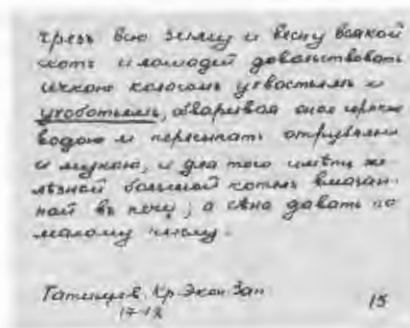 чрезъ всю зиму и весну всякой
скотъ и лошадей довольствовать
сечкою колосомъ ухвостьемъ и
ухоботьемъ, обваривая оное горячею
водою и пересыпать отрубями
и мукою, и для того иметь же
лѣзной большой котелъ вмазан
ной въ печи; а сѣна давать по
малому числу.
Татищев. Кр. Экон. Зап
15